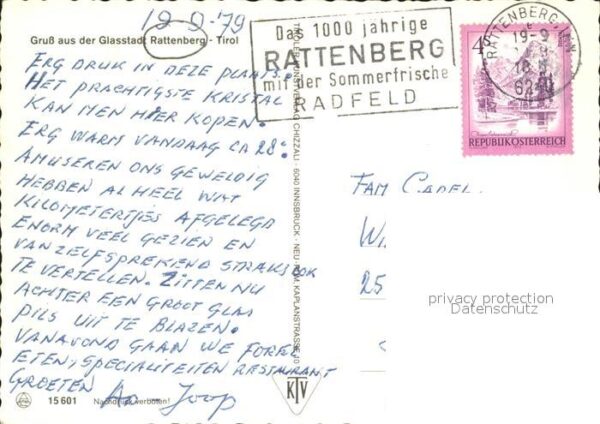 19-9-'79
Gruß aus der Glasstadt Rattenberg - Tirol
ERG DRUK IN DEZE PLAATS.
HET PRACHTIGSTE KRISTAL
KAN MEN HIER KOPEN.
ERG WARM VANDAAG CA 28°.
AMUSEREN ONS GEWELDIG
HEBBEN AL HEEL WAT
KILOMETERTJES AFGELEGD
ENORM VEEL GEZIEN EN
VANZELFSPREKEND STRAKS OOK
TE VERTELLEN. ZITTEN NU
ACHTER EEN GROOT GLAS
PILS UIT TE BLAZEN.
VANAVOND GAAN WE FOREL
ETEN, SPECIALITEITEN RESTAURANT
GROETEN
Joop
15 601 Nachdruck verboten!
TIROLER KUNSTVERLAG CHIZZALI · 6040 INNSBRUCK - NEU-RUM, KAPLANSTRASSE
KTV
Das 1000 jährige
RATTENBERG
mit der Sommerfrische
RADFELD
RATTENBERG, INN
19-9
6240
4
REPUBLIK ÖSTERREICH
FAM
W
25
privacy protection
Datenschutz